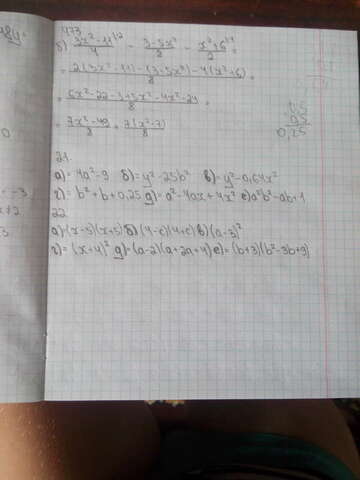 473
б) 3x²-11/4 \2 - 3-5x²/8 - x²+6/2 \4 =
= 2(3x²-11)-(3-5x²)-4(x²+6)/8 =
= 6x²-22-3+5x²-4x²-24/8 =
= 7x²-49/8 = 7(x²-7)/8
0,25
21.
а)= 4a²-9 б)= y²-25b² в)= y²-0,64x²
г)= b²+b+0,25 д)= a²-4ax+4x² е) a²b²-ab+1
22
а)=(x-5)(x+5) б)(4-c)(4+c) в)(a-3)²
г)=(x+4)² д)=(a-2)(a+2a+4) е)=(b+3)(b²-3b+9)